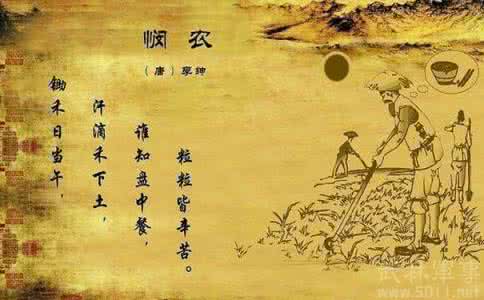 悯农
（唐）李绅
锄禾日当午，
汗滴禾下土，
谁知盘中餐，
粒粒皆辛苦。
www.5011.net